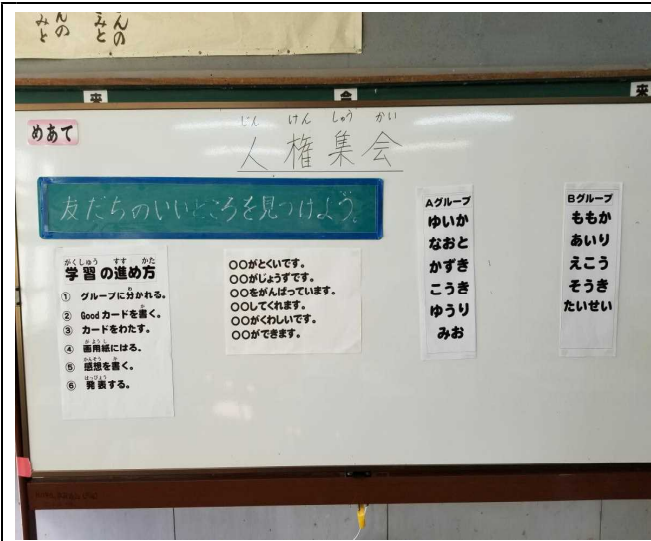 んの
みと
んの
みと
来
会
来
めあて
じん けん しゅう かい
人権集会
友だちのいいところを見つけよう。
がくしゅう すす かた
学習の進め方
わ
① グループに分かれる。
か
② Goodカードを書く。
③ カードをわたす。
がようし
④ 画用紙にはる。
かんそう か
⑤ 感想を書く。
はっぴょう
⑥ 発表する。
〇〇がとくいです。
〇〇がじょうずです。
〇〇をがんばっています。
〇〇してくれます。
〇〇がくわしいです。
〇〇ができます。
Aグループ
ゆいか
なおと
かずき
こうき
ゆうり
みお
Bグループ
ももか
あいり
えこう
そうき
たいせい